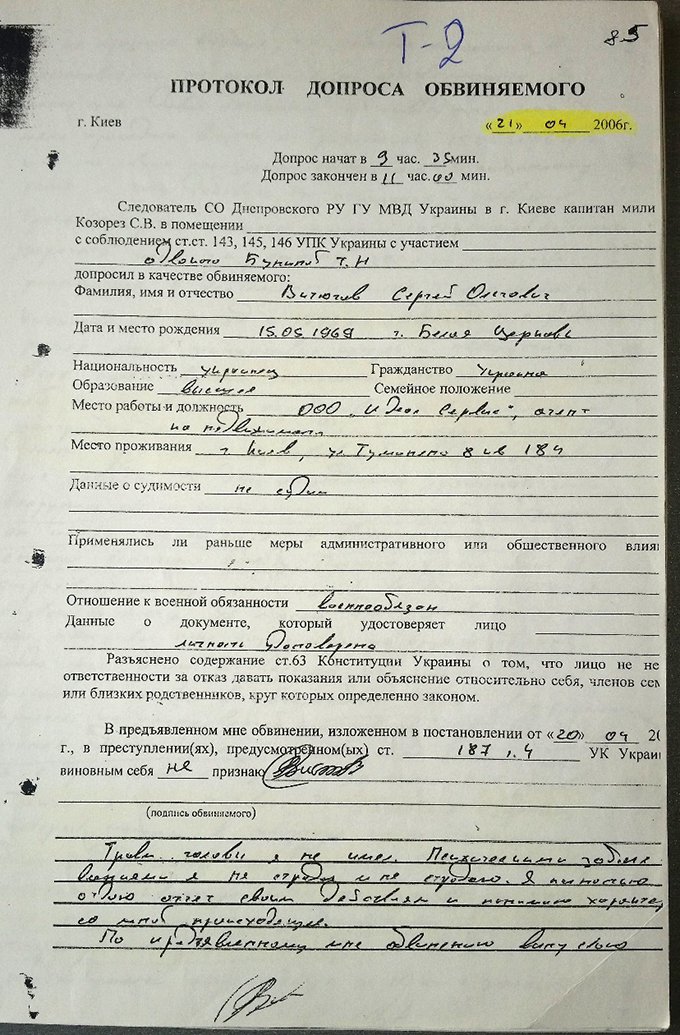 Т-2
85
ПРОТОКОЛ ДОПРОСА ОБВИНЯЕМОГО
г. Киев «21» 04 2006г.
Допрос начат в 9 час. 35 мин.
Допрос закончен в 11 час. 00 мин.
Следователь СО Днепровского РУ ГУ МВД Украины в г. Киеве капитан мили
Козорез С.В. в помещении
с соблюдением ст.ст. 143, 145, 146 УПК Украины с участием
допросил в качестве обвиняемого:
Фамилия, имя и отчество Сергей Олегович
Дата и место рождения 15.05 1969 г. Белая Церковь
Национальность украинец Гражданство Украина
Образование высшее Семейное положение
Место работы и должность ООО Сервис", агент
по недвижимости
Место проживания г Киев, ул 8 кв 184
Данные о судимости не судим
Применялись ли раньше меры административного или общественного влия
Отношение к военной обязанности военнообязан
Данные о документе, который удостоверяет лицо
личность
Разъяснено содержание ст.63 Конституции Украины о том, что лицо не не
ответственности за отказ давать показания или объяснение относительно себя, членов сем
или близких родственников, круг которых определенно законом.
В предъявленном мне обвинении, изложенном в постановлении от «20» 04 20
г., в преступлении(ях), предусмотренном(ых) ст. 187 ч. 4 УК Украи
виновным себя не признаю
(подпись обвиняемого)
Травм головы я не имел. Психическими заболе
ваниями я не страдал и не страдаю. Я полностью
отдаю отчет своим действиям и понимаю характер
со мной происходящее.
По предъявленному мне обвинению вину свою